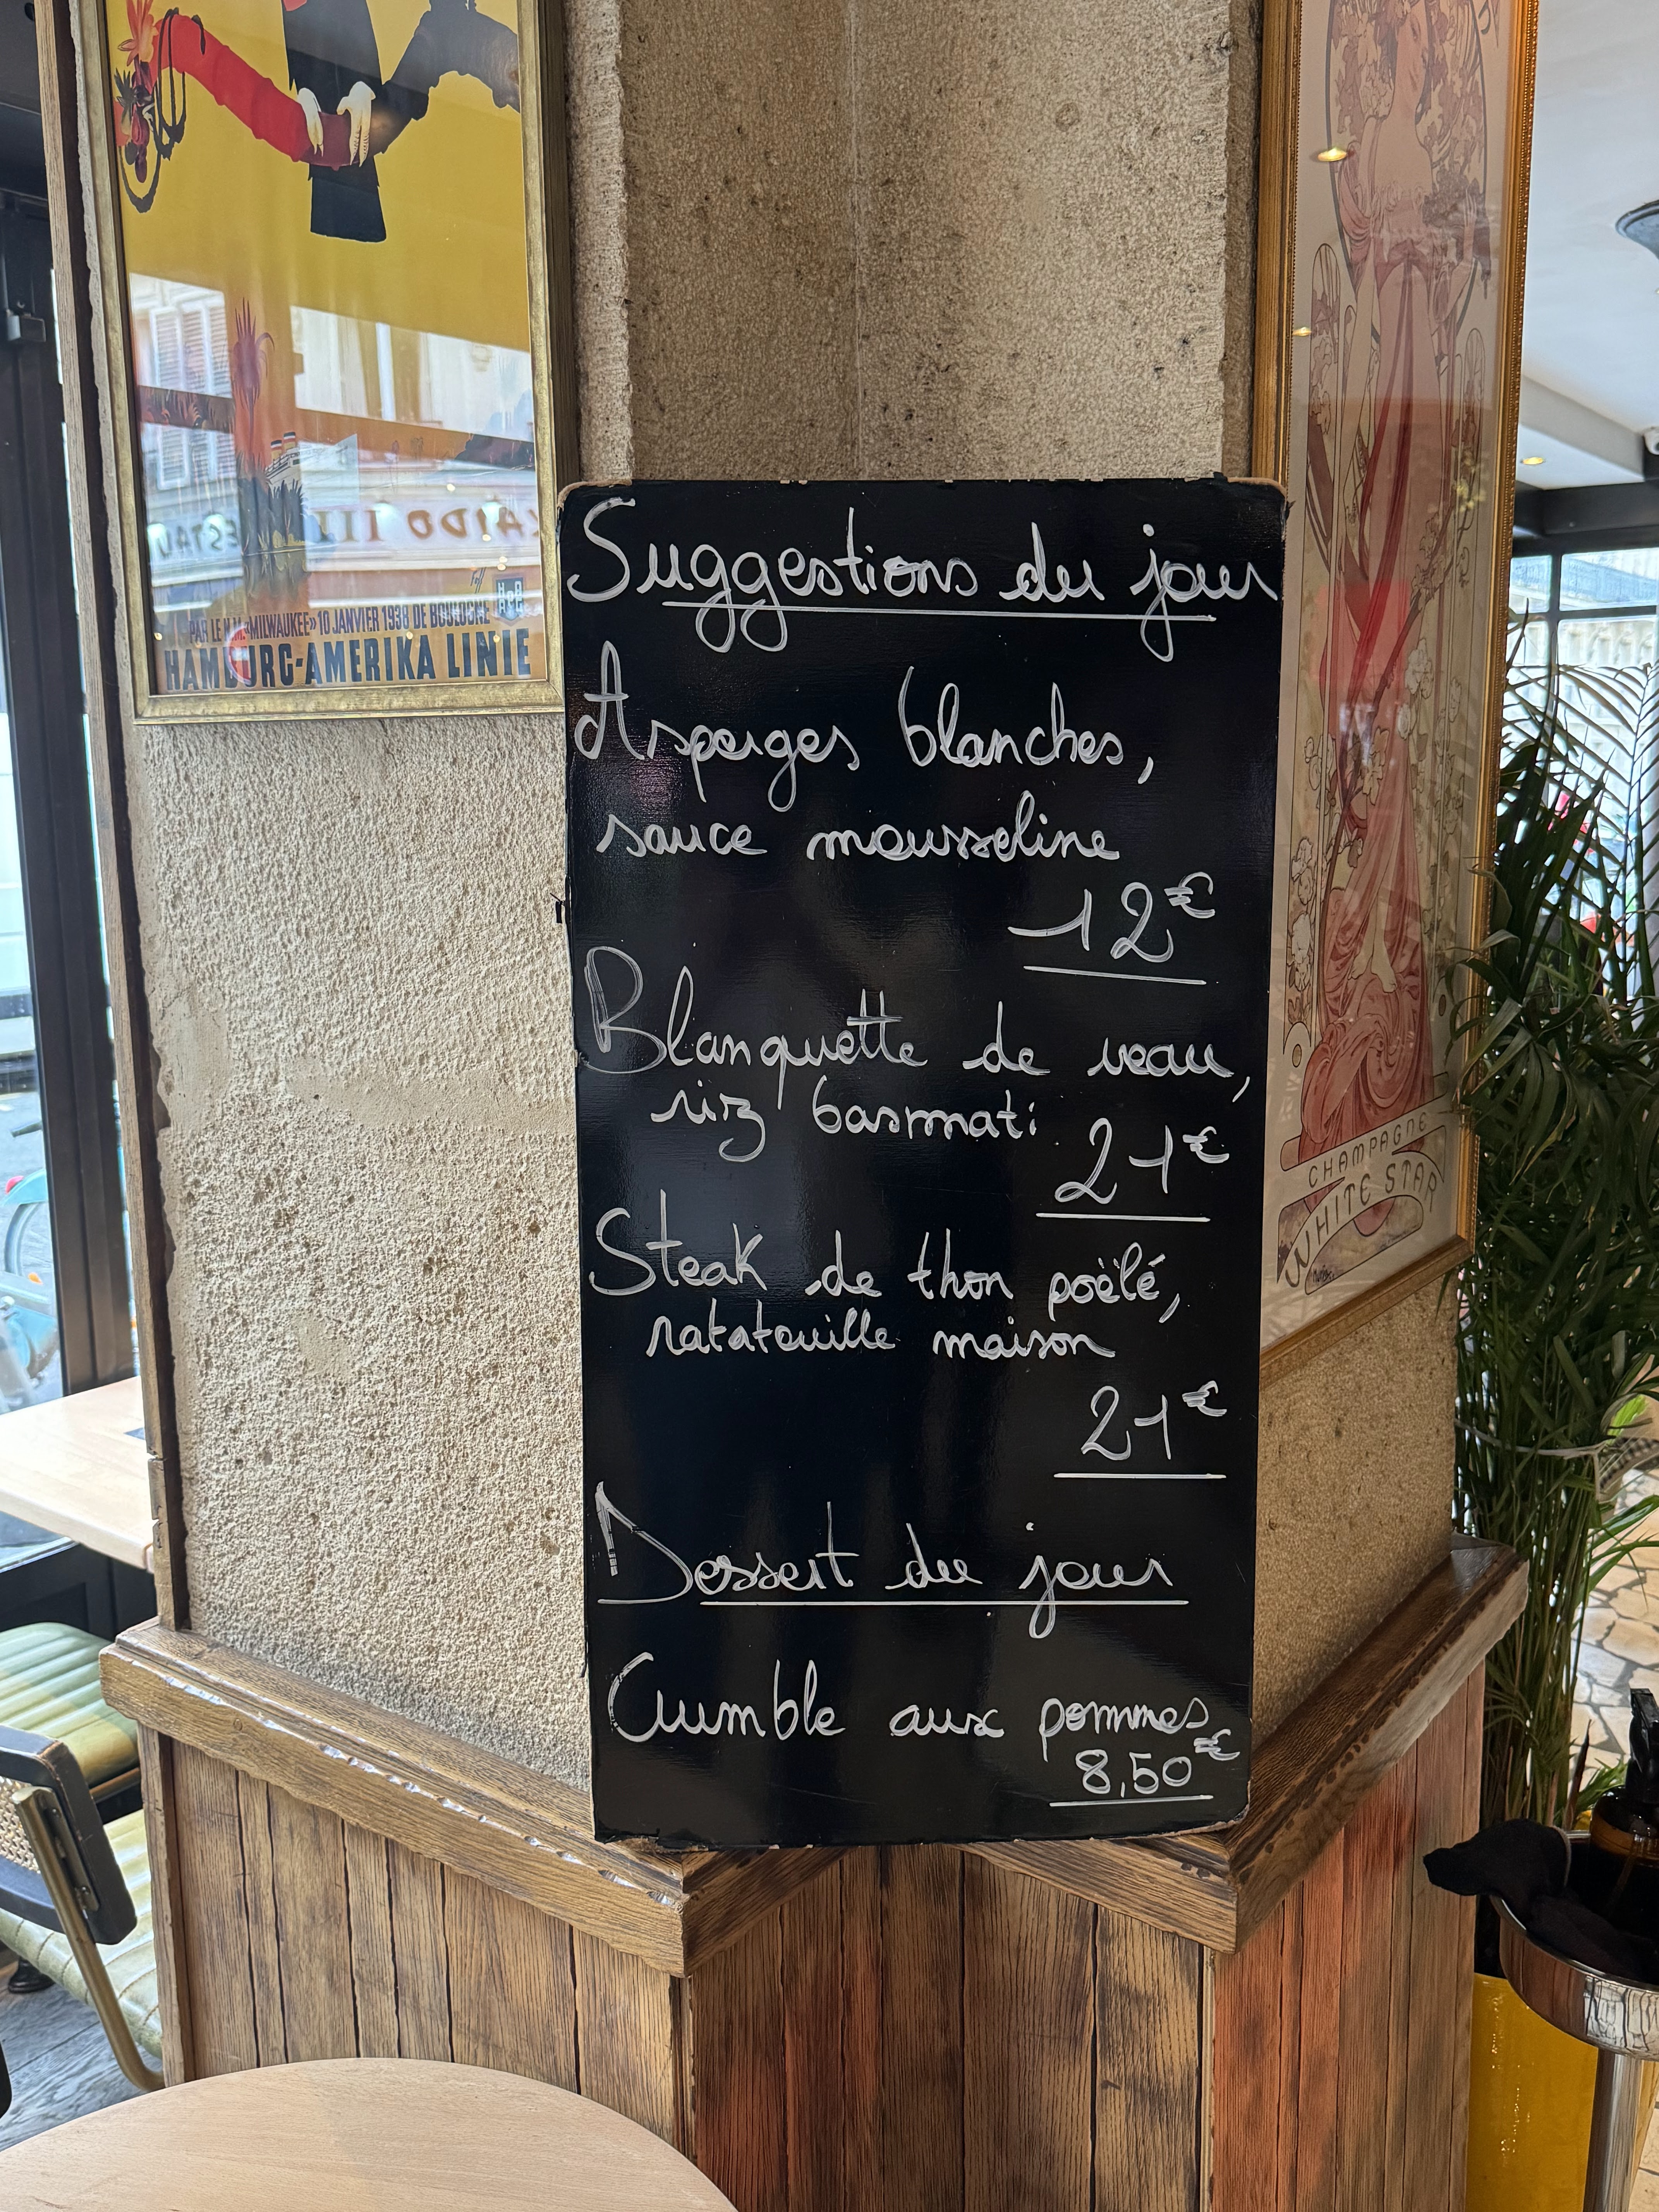 PAR LE N.M. «MILWAUKEE» 10 JANVIER 1938 DE BOULOGNE
HAMBURG-AMERIKA LINIE
Suggestions du jour
Asperges blanches,
sauce mousseline
12€
Blanquette de veau,
riz basmati
21€
Steak de thon poëlé,
ratatouille maison
21€
Dessert du jour
Crumble aux pommes
8,50€
CHAMPAGNE
WHITE STAR